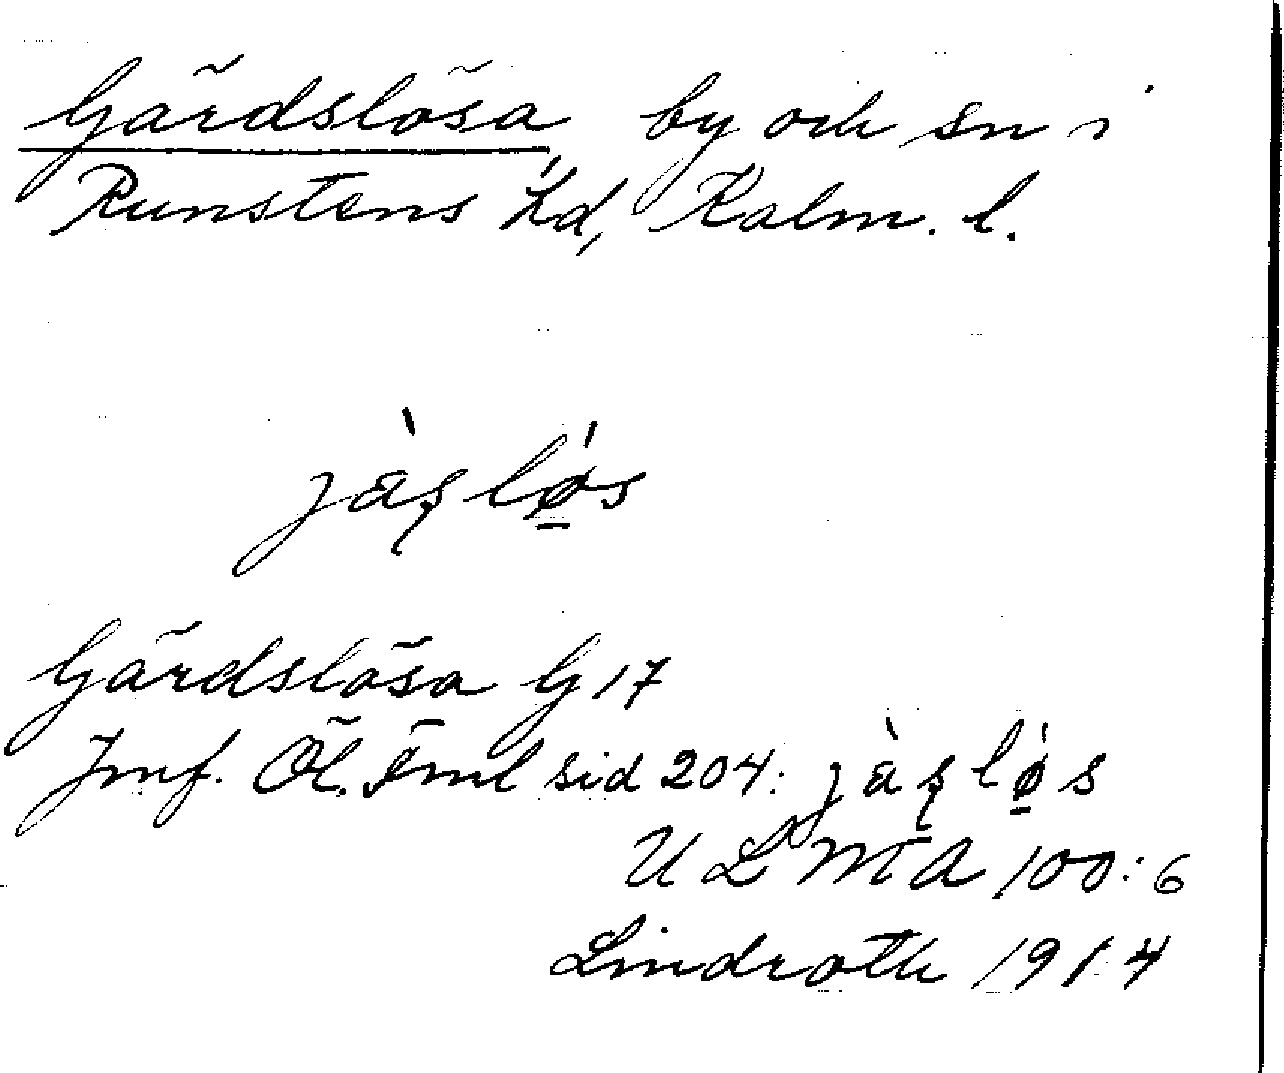 Gärdslösa, by och sn i
Runstens hd, Kalm. l.
jàꞩlǿ̱s
Gärdslösa G 17
Jmf. Öl. Fml sid 204: jàꞩlǿ̱s
ULMA 100:6
Lindroth 1914